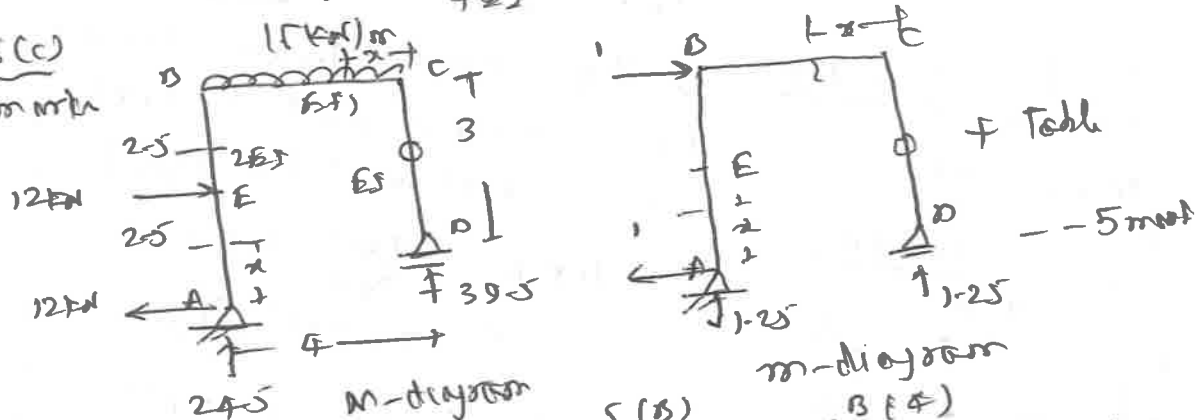 (c)
15 kN/m
x
B
C
EI
3
2.5
2EI
12 kN
E
EI
2.5
x
D
12 kN
A
39.5
4
24.5
M-diagram
1
B
x
C
E
x
D
1
A
1.25
1.25
+ Table
-- 5 mark
m-diagram
(B)
B (4)